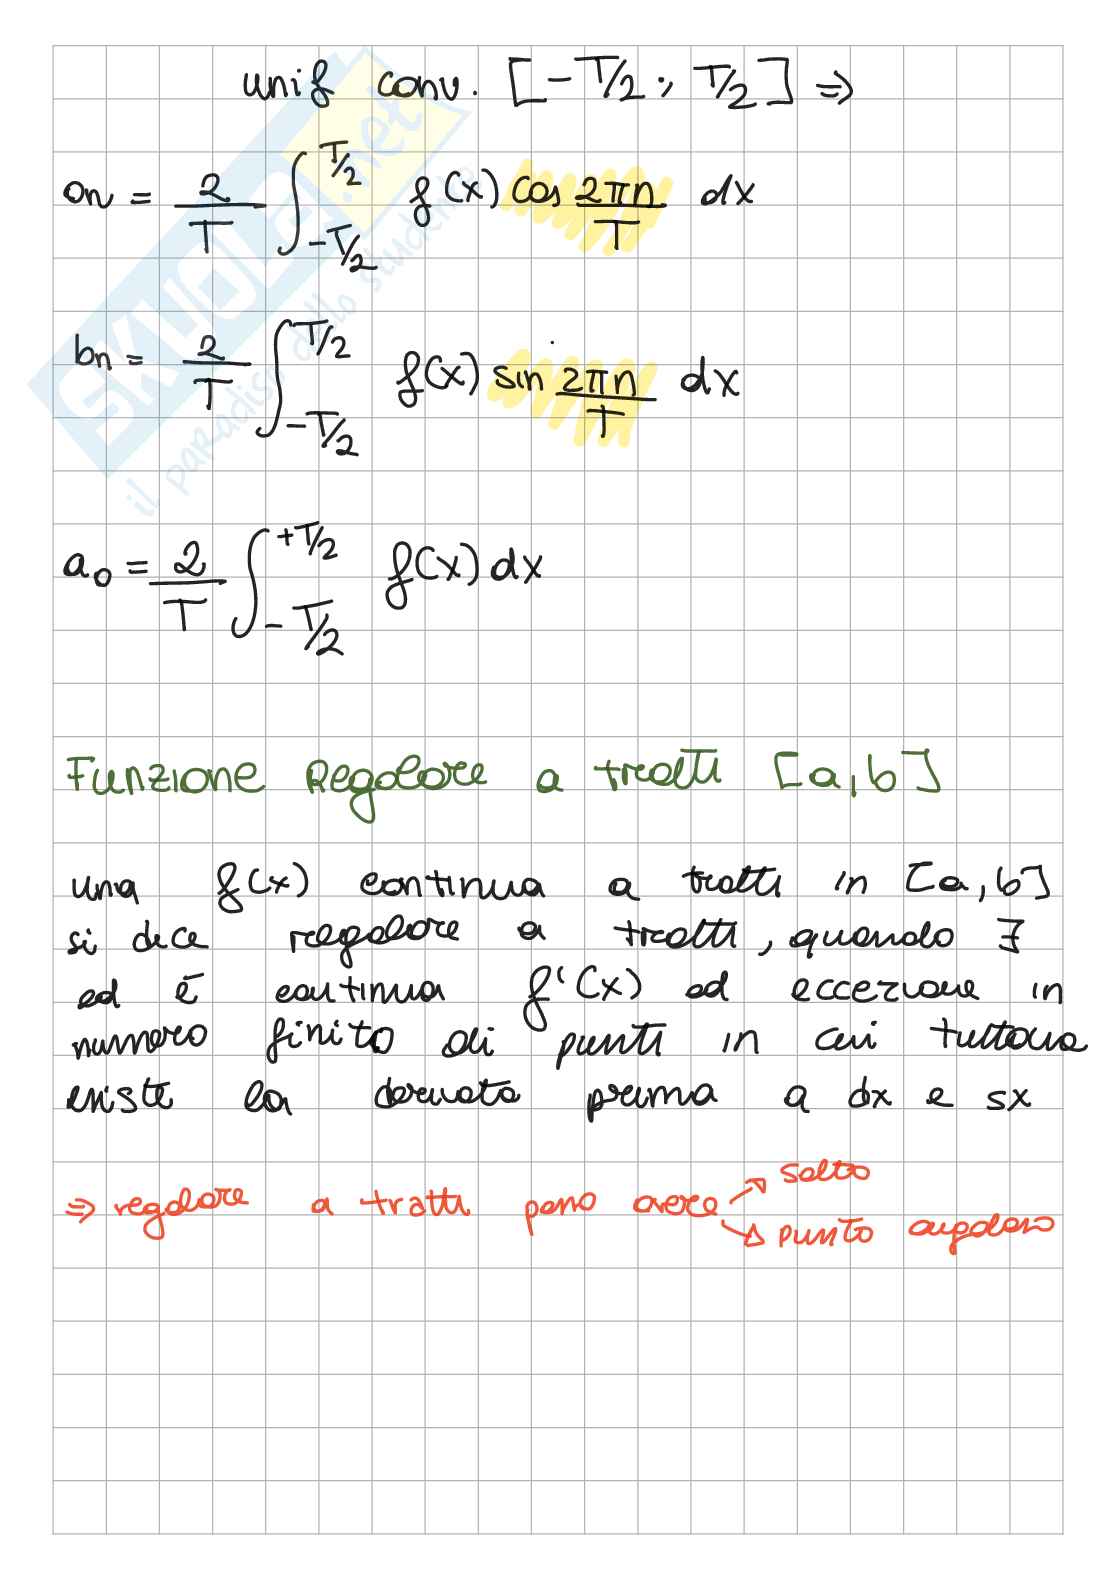 unif conv. [-T/2 ; T/2] ⇒
an = 2/T ∫_{-T/2}^{T/2} f(x) cos 2πn/T dx
bn = 2/T ∫_{-T/2}^{T/2} f(x) sin 2πn/T dx
a₀ = 2/T ∫_{-T/2}^{+T/2} f(x) dx
Funzione Regolare a tratti [a,b]
una f(x) continua a tratti in [a,b]
si dice regolare a tratti, quando ∃
ed è continua f'(x) ad eccezione in
numero finito di punti in cui tuttavia
esiste la derivata prima a dx e sx
⇒ regolare a tratti avere → salto
→ punto angoloso
SKUOLA.net
il paradiso dello studente